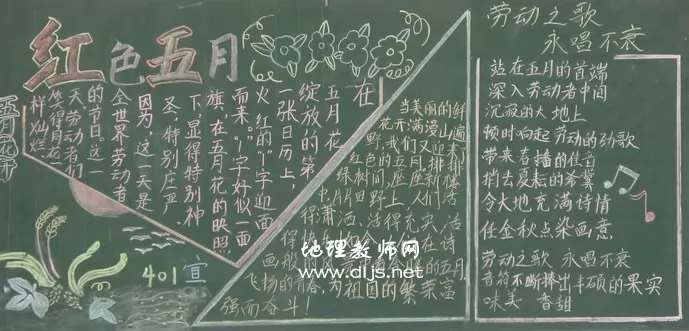 红色五月
五月花市
在
五月花
绽放的第
一张日历上，
火红的“1”字迎面
而来。“1”字好似一面
旗，在五月花的映照
下，显得特别神
圣、特别庄严。
因为，这一天是
全世界劳动者
的节日。这一
天，劳动者们
笑得同花
样灿烂
401宣
当美丽的鲜
花开满漫山遍
野，我们又迎来了
红色的五月，排排
绿树间，座座新楼
中，片片田野上，人们活
得潇洒，活得充实，活
飞扬的青春，为祖国的繁荣富
强而奋斗！
地理教师网
www.dljs.net
劳动之歌
永唱不衰
站在五月的首端
深入劳动者中间
沉寂的大地上
顿时响起劳动的劲歌
带来春播的佳音
捎去夏耘的答案
令大地充满诗情
任金秋点染画意
劳动之歌 永唱不衰
音符不断捧出丰硕的果实
味美 香甜